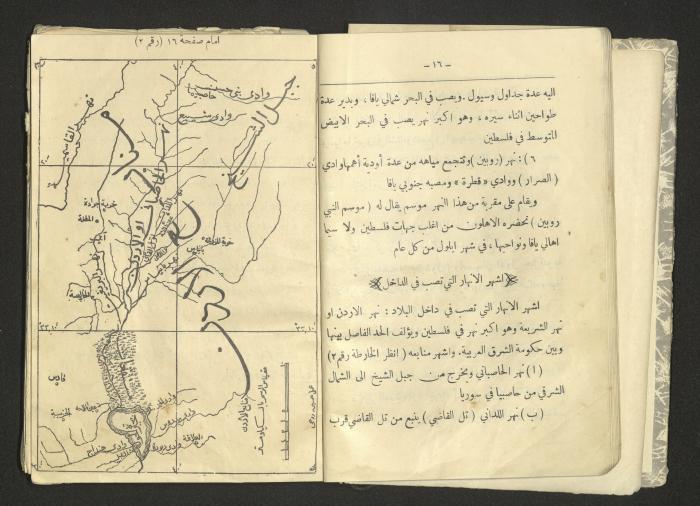 - ١٦ -
اليه عدة جداول وسيول . ويصب في البحر شمالي يافا ، ويدير عدة
طواحين اثناء سيره ، وهو اكبر نهر يصب في البحر الابيض
المتوسط في فلسطين
٦ ) : نهر ( روبين ) وتتجمع مياهه من عدة أودية أهمها وادي
( الصرار ) ووادي « قطرة » ومصبه جنوبي يافا
ويقام على مقربة من هذا النهر موسم يقال له ( موسم النبي
روبين ) تحضره الاهلون من اغلب جهات فلسطين ولا سيما
اهالي يافا ونواحيها ، في شهر ايلول من كل عام
اشهر الانهار التي تصب في الداخل
اشهر الانهار التي تصب في داخل البلاد : نهر الاردن او
نهر الشريعة وهو اكبر نهر في فلسطين ويؤلف الحد الفاصل بينها
وبين حكومة الشرق العربية . واشهر منابعه ( انظر الخارطة رقم ٢ )
( ا ) نهر الحاصباني ويخرج من جبل الشيخ الى الشمال
الشرقي من حاصبيا في سوريا
( ب ) نهر اللداني ( تل القاضي ) ينبع من تل القاضي قرب
امام صفحة ١٦ ( رقم ٢ )
جبل الشيخ
حاصبيا
نهر القاسمية
خربة جرادة
المطلة
بانياس
الخالصة
قادس
منابع الاردن